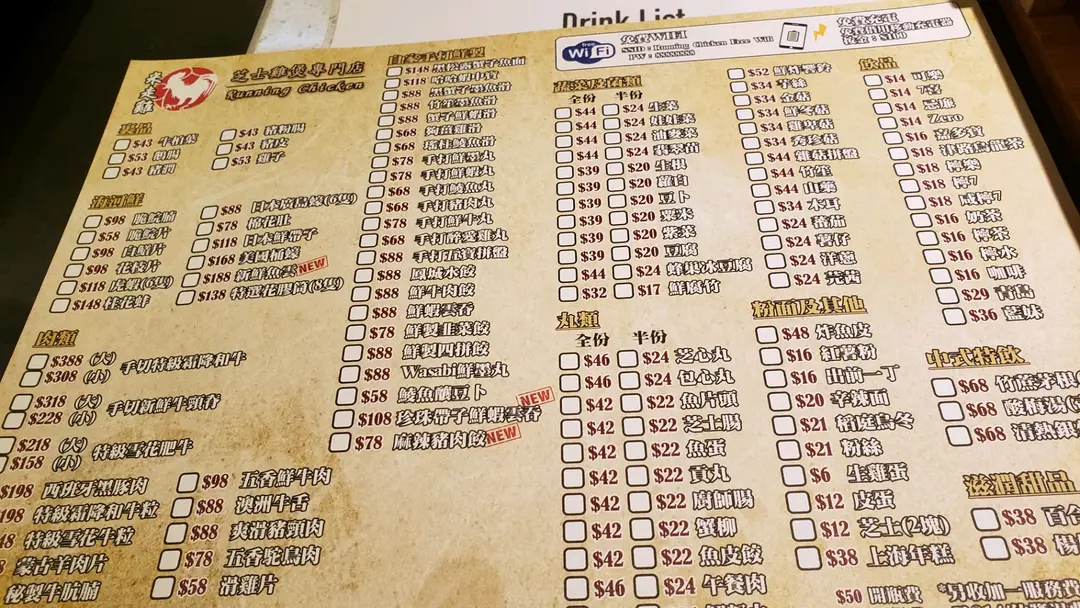 Drink List
免費WIFI
SSID : Running Chicken Free Wifi
PW : 88888888
free
WiFi
免費充電
免費借用移動充電器
按金 : $100
走走雞
芝士雞煲專門店
Running Chicken
$43 牛柏葉
$53 鵝腸
$43 豬潤
$43 豬粉腸
$43 豬皮
$53 雞子
海河鮮
$98 脆鯇腩
$58 脆鯇片
$98 白鱔片
$98 花枝片
$118 虎蝦(6隻)
$148 桂花蚌
$88 日本廣島蠔(6隻)
$78 棉花肚
$118 日本鮮帶子
$168 美國桶蠔
$188 新鮮魚雲 NEW
$138 特選花膠筒(8隻)
肉類
$388 (大)
$308 (小)
手切特級霜降和牛
$318 (大)
$228 (小)
手切新鮮牛頸脊
$218 (大)
$158 (小)
特級雪花肥牛
$198 西班牙黑豚肉
198 特級霜降和牛粒
特級雪花牛粒
蒙古羊肉片
秘製牛肮腩
$98 五香鮮牛肉
$88 澳洲牛舌
$88 爽滑豬頸肉
$78 五香鴕鳥肉
$58 滑雞片
自家手打鮮製
$148 黑松露獅子魚面
$118
$88 黑獅子魚滑
$88 竹笙魚滑
$88 獅子鮮蝦滑
$68 舞茸雞滑
$68 瑤柱鯪魚滑
$78 手打鮮墨丸
$78 手打鮮蝦丸
$68 手打鯪魚丸
$68 手打豬肉丸
$78 手打鮮牛丸
$68 手打醉愛雞丸
$88 手打五寶拼盤
$88 鳳城水餃
$88 鮮牛肉餃
$88 鮮蝦雲吞
$78 鮮製韭菜餃
$88 鮮製四拼餃
$88 Wasabi鮮墨丸
$58 鯪魚釀豆卜
$108 珍珠帶子鮮蝦雲吞 NEW
$78 麻辣豬肉餃 NEW
蔬菜及菌類
全份 半份
$44 $24 生菜
$44 $24 娃娃菜
$44 $24 油麥菜
$44 $24 翡翠苗
$39 $20 生根
$39 $20 蘿白
$39 $20 豆卜
$39 $20 粟米
$39 $20 紫菜
$39 $20 豆腐
$44 $24 蜂巢冰豆腐
$32 $17 鮮腐竹
$52 鮮炸響鈴
$34 芋絲
$34 金菇
$34 鮮冬菇
$34 雞脾菇
$34 秀珍菇
$44 雜菇拼盤
$44 竹笙
$44 山藥
$34 木耳
$24 蕃茄
$24 薯仔
$24 洋蔥
$24 芫茜
丸類
全份 半份
$46 $24 芝心丸
$46 $24 包心丸
$42 $22 魚片頭
$42 $22 芝士腸
$42 $22 魚蛋
$42 $22 貢丸
$42 $22 廚師腸
$42 $22 蟹柳
$42 $22 魚皮餃
$46 $24 午餐肉
粉面及其他
$48 炸魚皮
$16 紅薯粉
$16 出前一丁
$20 辛辣面
$21 稻庭烏冬
$21 粉絲
$6 生雞蛋
$12 皮蛋
$12 芝士(2塊)
$38 上海年糕
$50 開瓶費
*另收加一服務費
飲品
$14 可樂
$14 7喜
$14 忌廉
$14 Zero
$16 嘉多寶
$18 津路烏龍茶
$18 檸樂
$18 檸7
$18 咸檸7
$16 奶茶
$16 檸茶
$16 檸水
$16 咖啡
$29 青島
$36 藍妹
中式特飲
$68 竹蔗茅根
$68 酸梅湯
$68 清熱銀
滋潤甜品
$38 百合
$38 楊